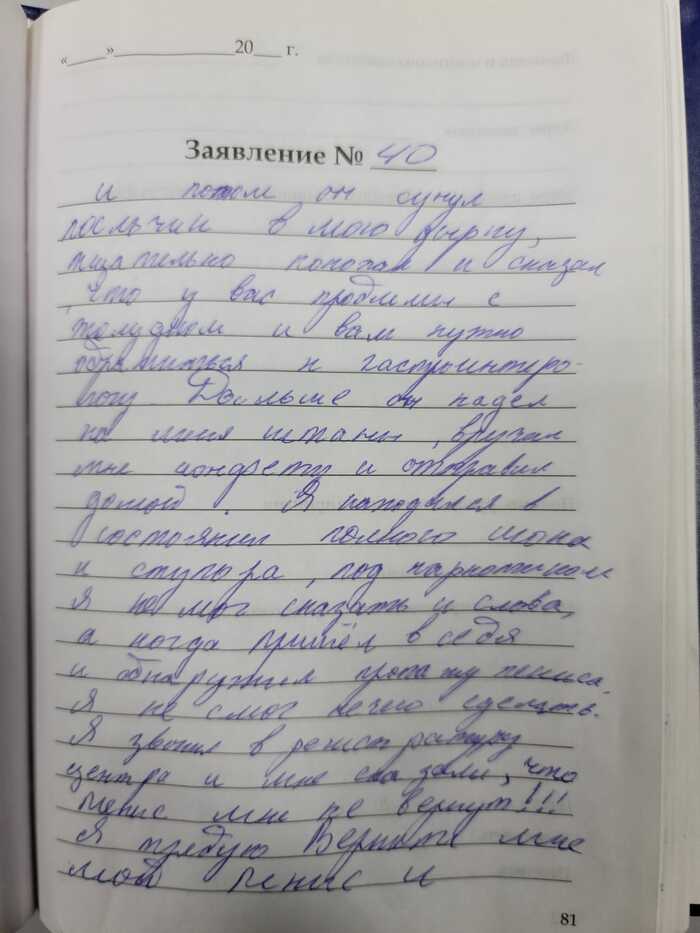 «____»____________20___ г.
Заявление № 40
и потом он сунул
пальчик в мою дырку,
тщательно покопал и сказал
, что у вас проблемы с
желудком и вам нужно
обратиться к гастроинтеро-
логу. Дальше он надел
на меня штаны, вручил
мне конфету и отправил
домой. Я находился в
состоянии полного шока
и ступора, под наркотиком
я не мог сказать и слова,
а когда пришёл в себя
и обнаружил пропажу пениса,
я не смог нечего сделать.
Я звонил в регистратуру
центра и мне сказали, что
пенис мне не вернут!!!
Я требую вернить мне
мой пенис и
81